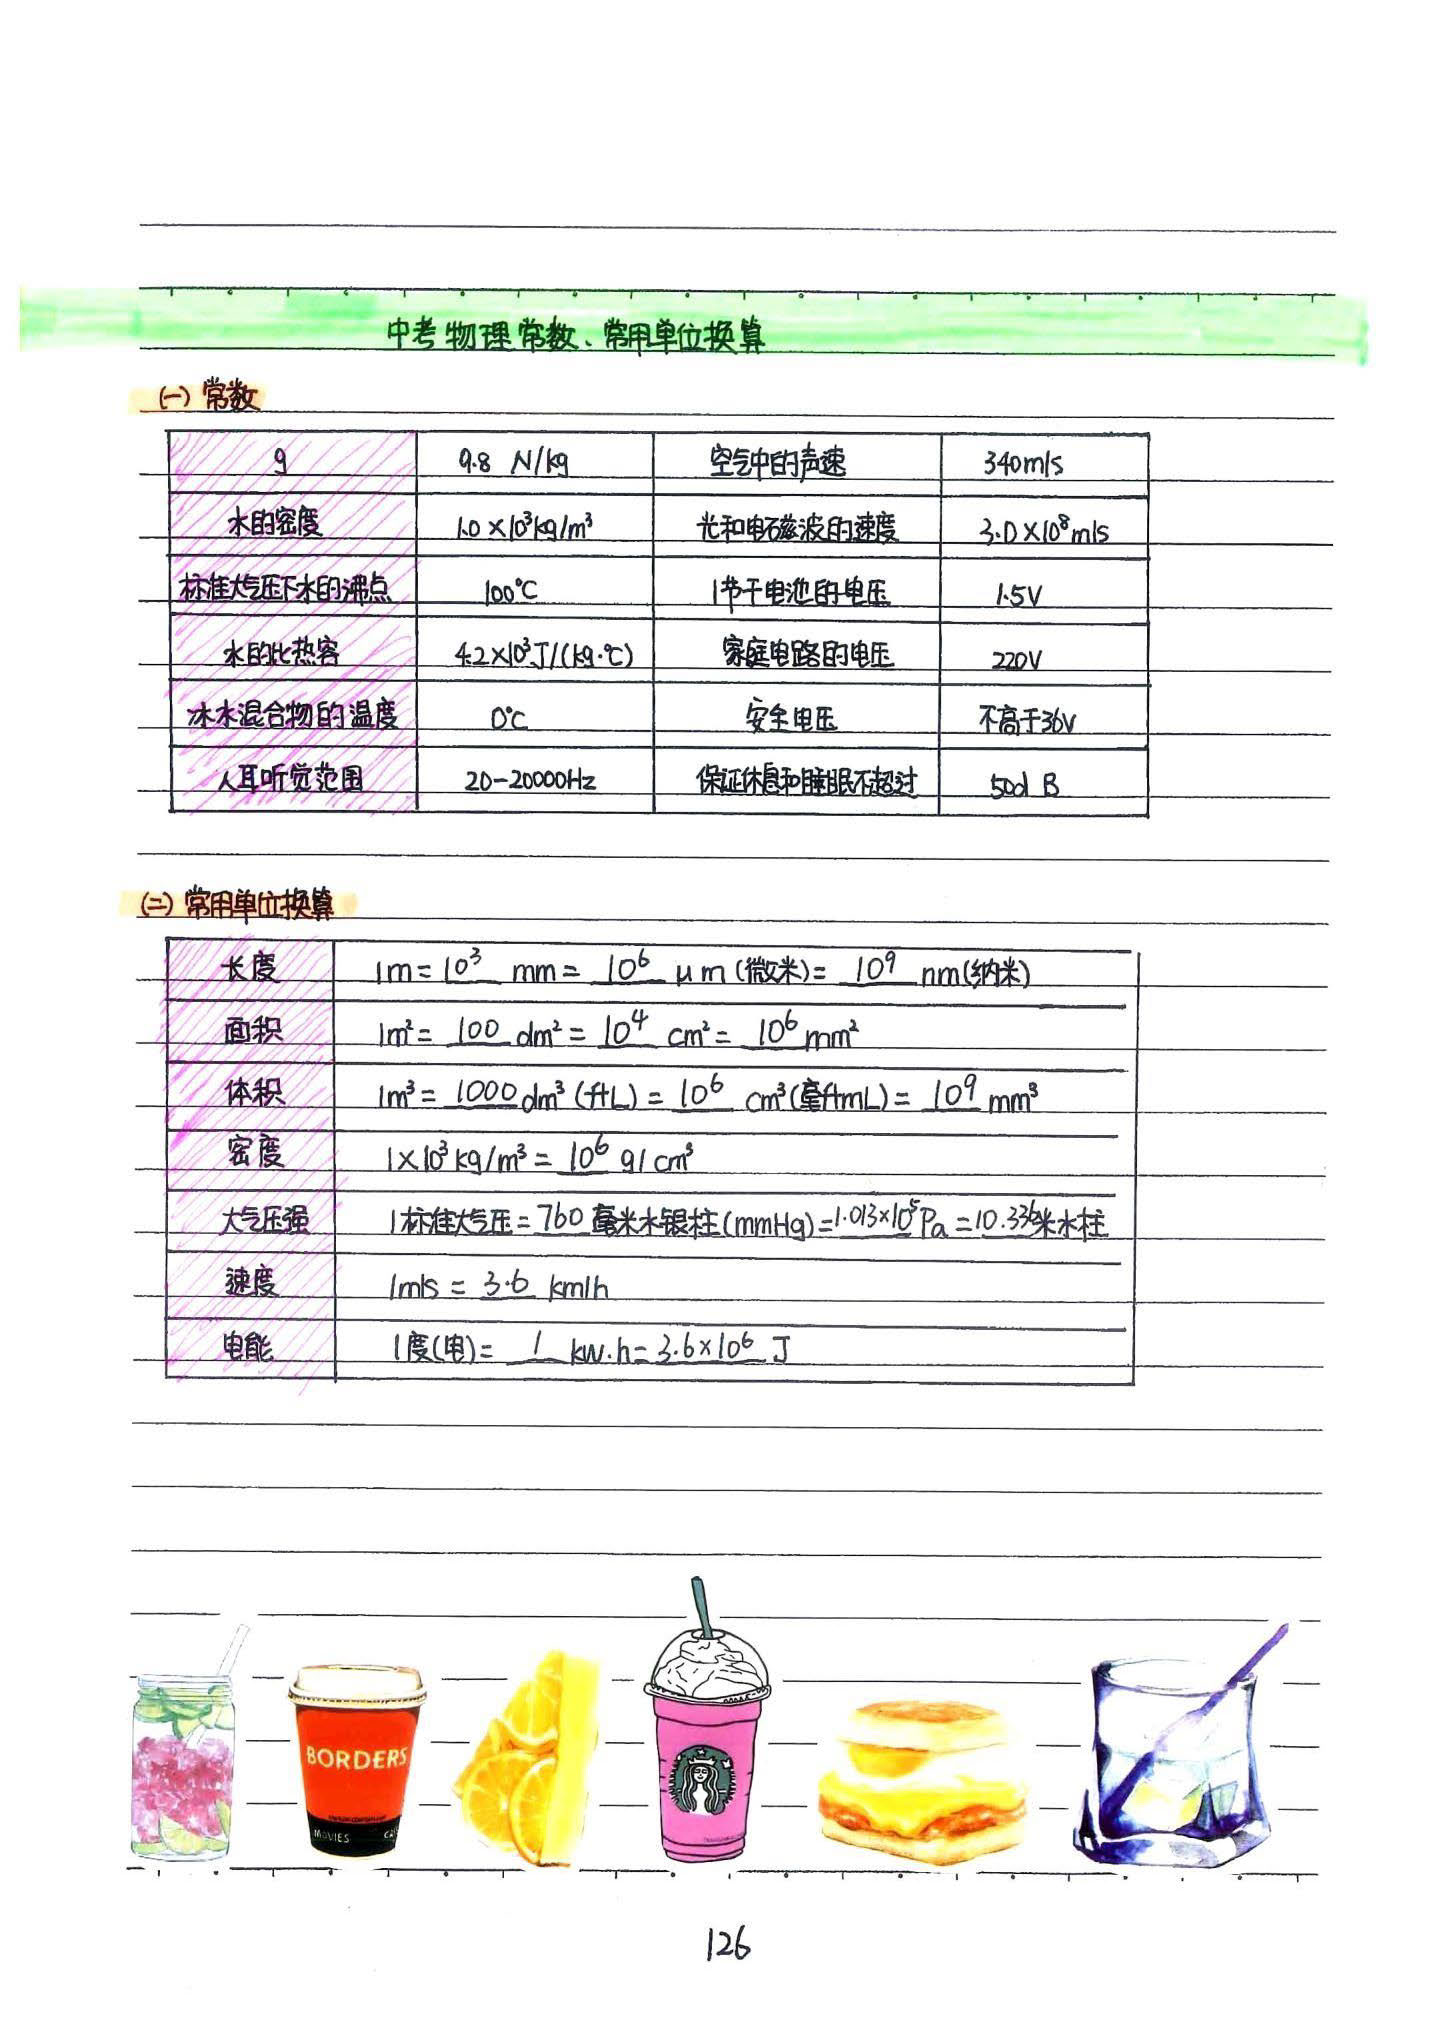 中考物理常数、常用单位换算
(一) 常数
g 9.8 N/kg 空气中的声速 340m/s
水的密度 1.0×10³kg/m³ 光和电磁波的速度 3.0×10⁸m/s
标准大气压下水的沸点 100℃ 1节干电池的电压 1.5V
水的比热容 4.2×10³J/(kg·℃) 家庭电路的电压 220V
冰水混合物的温度 0℃ 安全电压 不高于36V
人耳听觉范围 20-20000Hz 保证休息和睡眠不超过 50dB
(二) 常用单位换算
长度 1m=10³ mm=10⁶ μm(微米)=10⁹ nm(纳米)
面积 1m²=100 dm²=10⁴ cm²=10⁶ mm²
体积 1m³=1000 dm³(升L)=10⁶ cm³(毫升mL)=10⁹ mm³
密度 1×10³kg/m³=10⁶ g/cm³
大气压强 1标准大气压=760毫米水银柱(mmHg)=1.013×10⁵Pa=10.336米水柱
速度 1m/s=3.6 km/h
电能 1度(电)=1 kw.h=3.6×10⁶ J
BORDERS
MOVIES
126